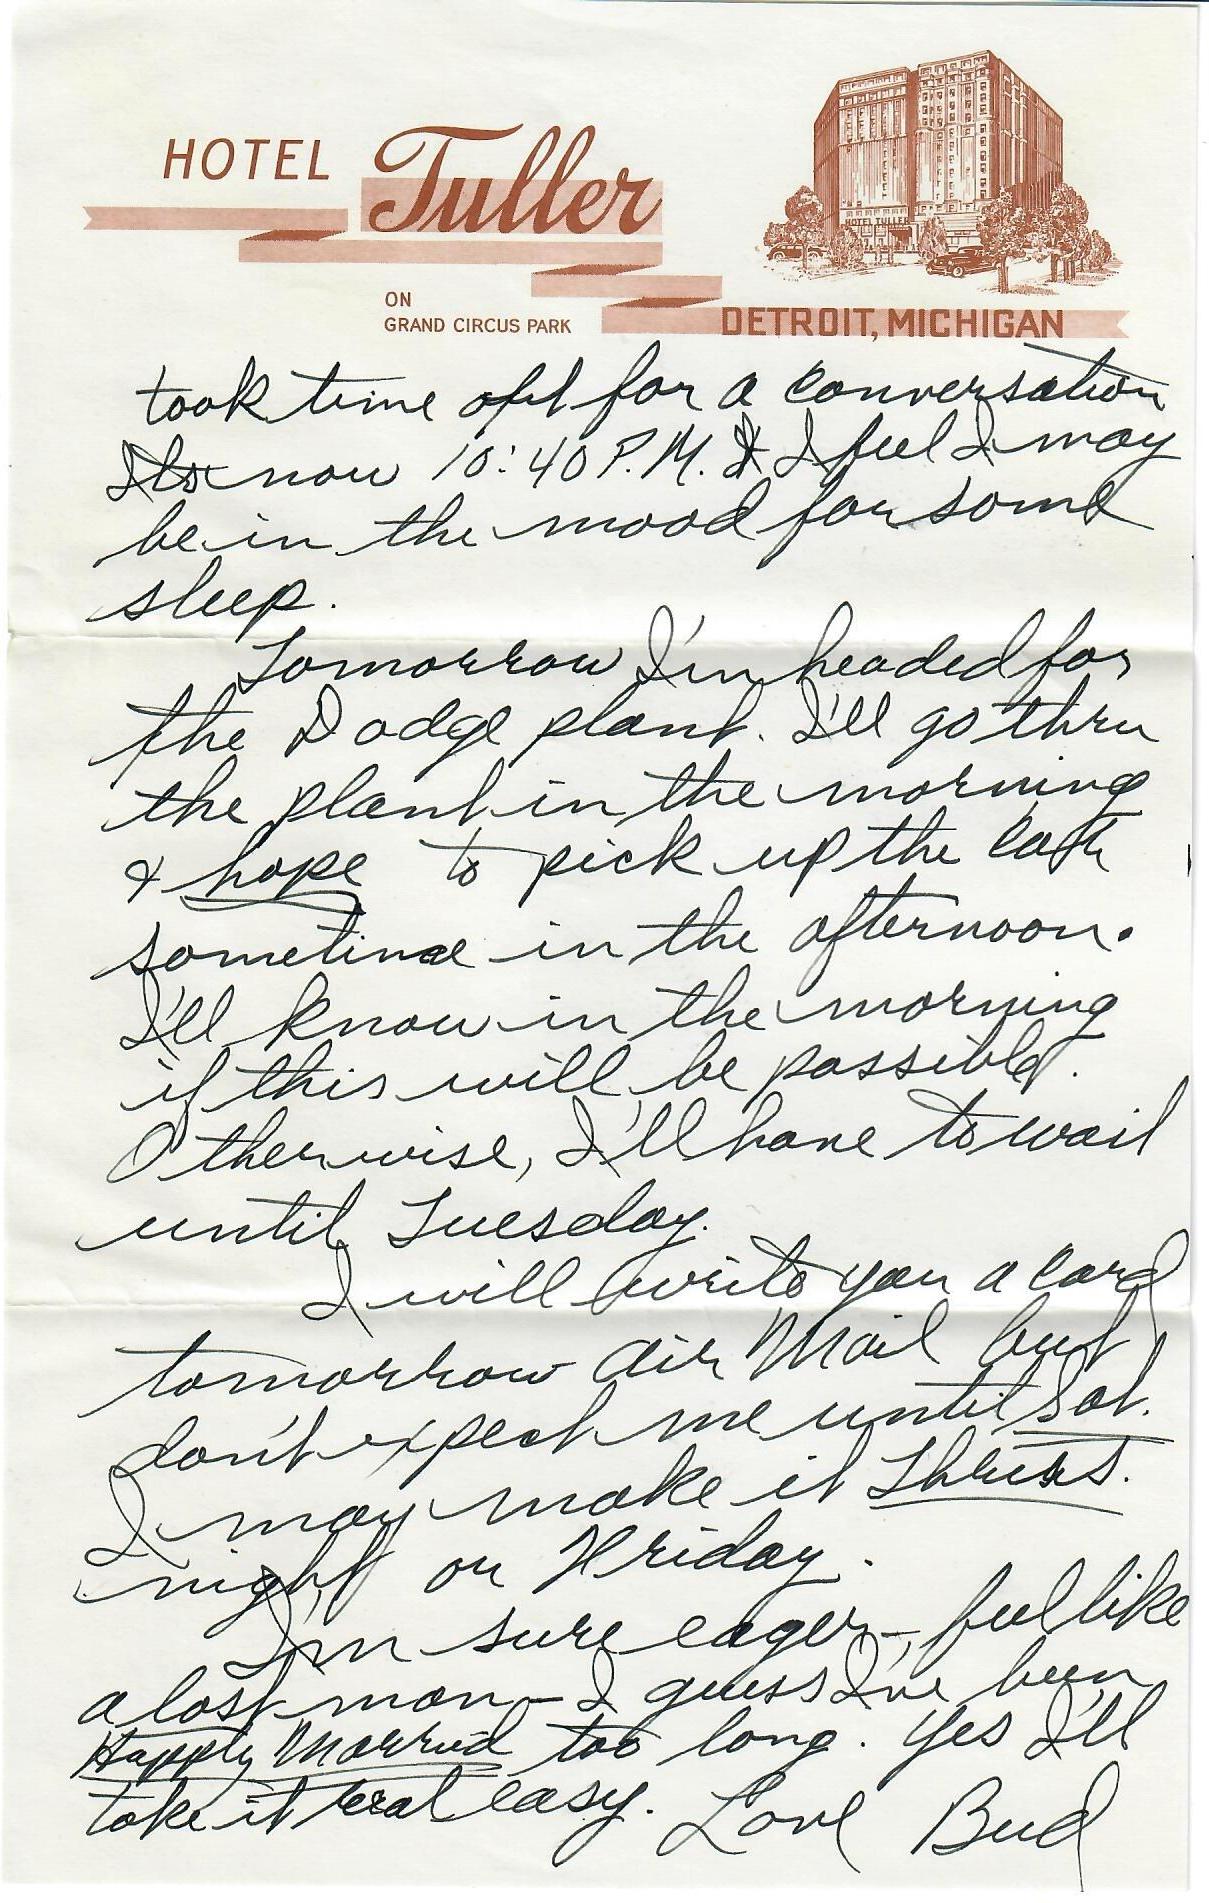 HOTEL Tuller
HOTEL TULLER
ON
GRAND CIRCUS PARK
DETROIT, MICHIGAN
took time off for a conversation
Its now 10:40 P.M. & I feel I may
be in the mood for some
sleep.
Tomorrow I'm headed for
the Dodge plant. I'll go thru
the plant in the morning
& hope to pick up the
sometime in the afternoon.
I'll know in the morning
if this will be possible.
Otherwise, I'll have to wait
until Tuesday.
I will write you a card
tomorrow Air Mail but
don't expect me until Sat.
I may make it Thurs.
night or Friday.
I'm sure eager - feel like
a lost man - I guess I've been
Happly Married too long. Yes I'll
take it real easy. Love Bud